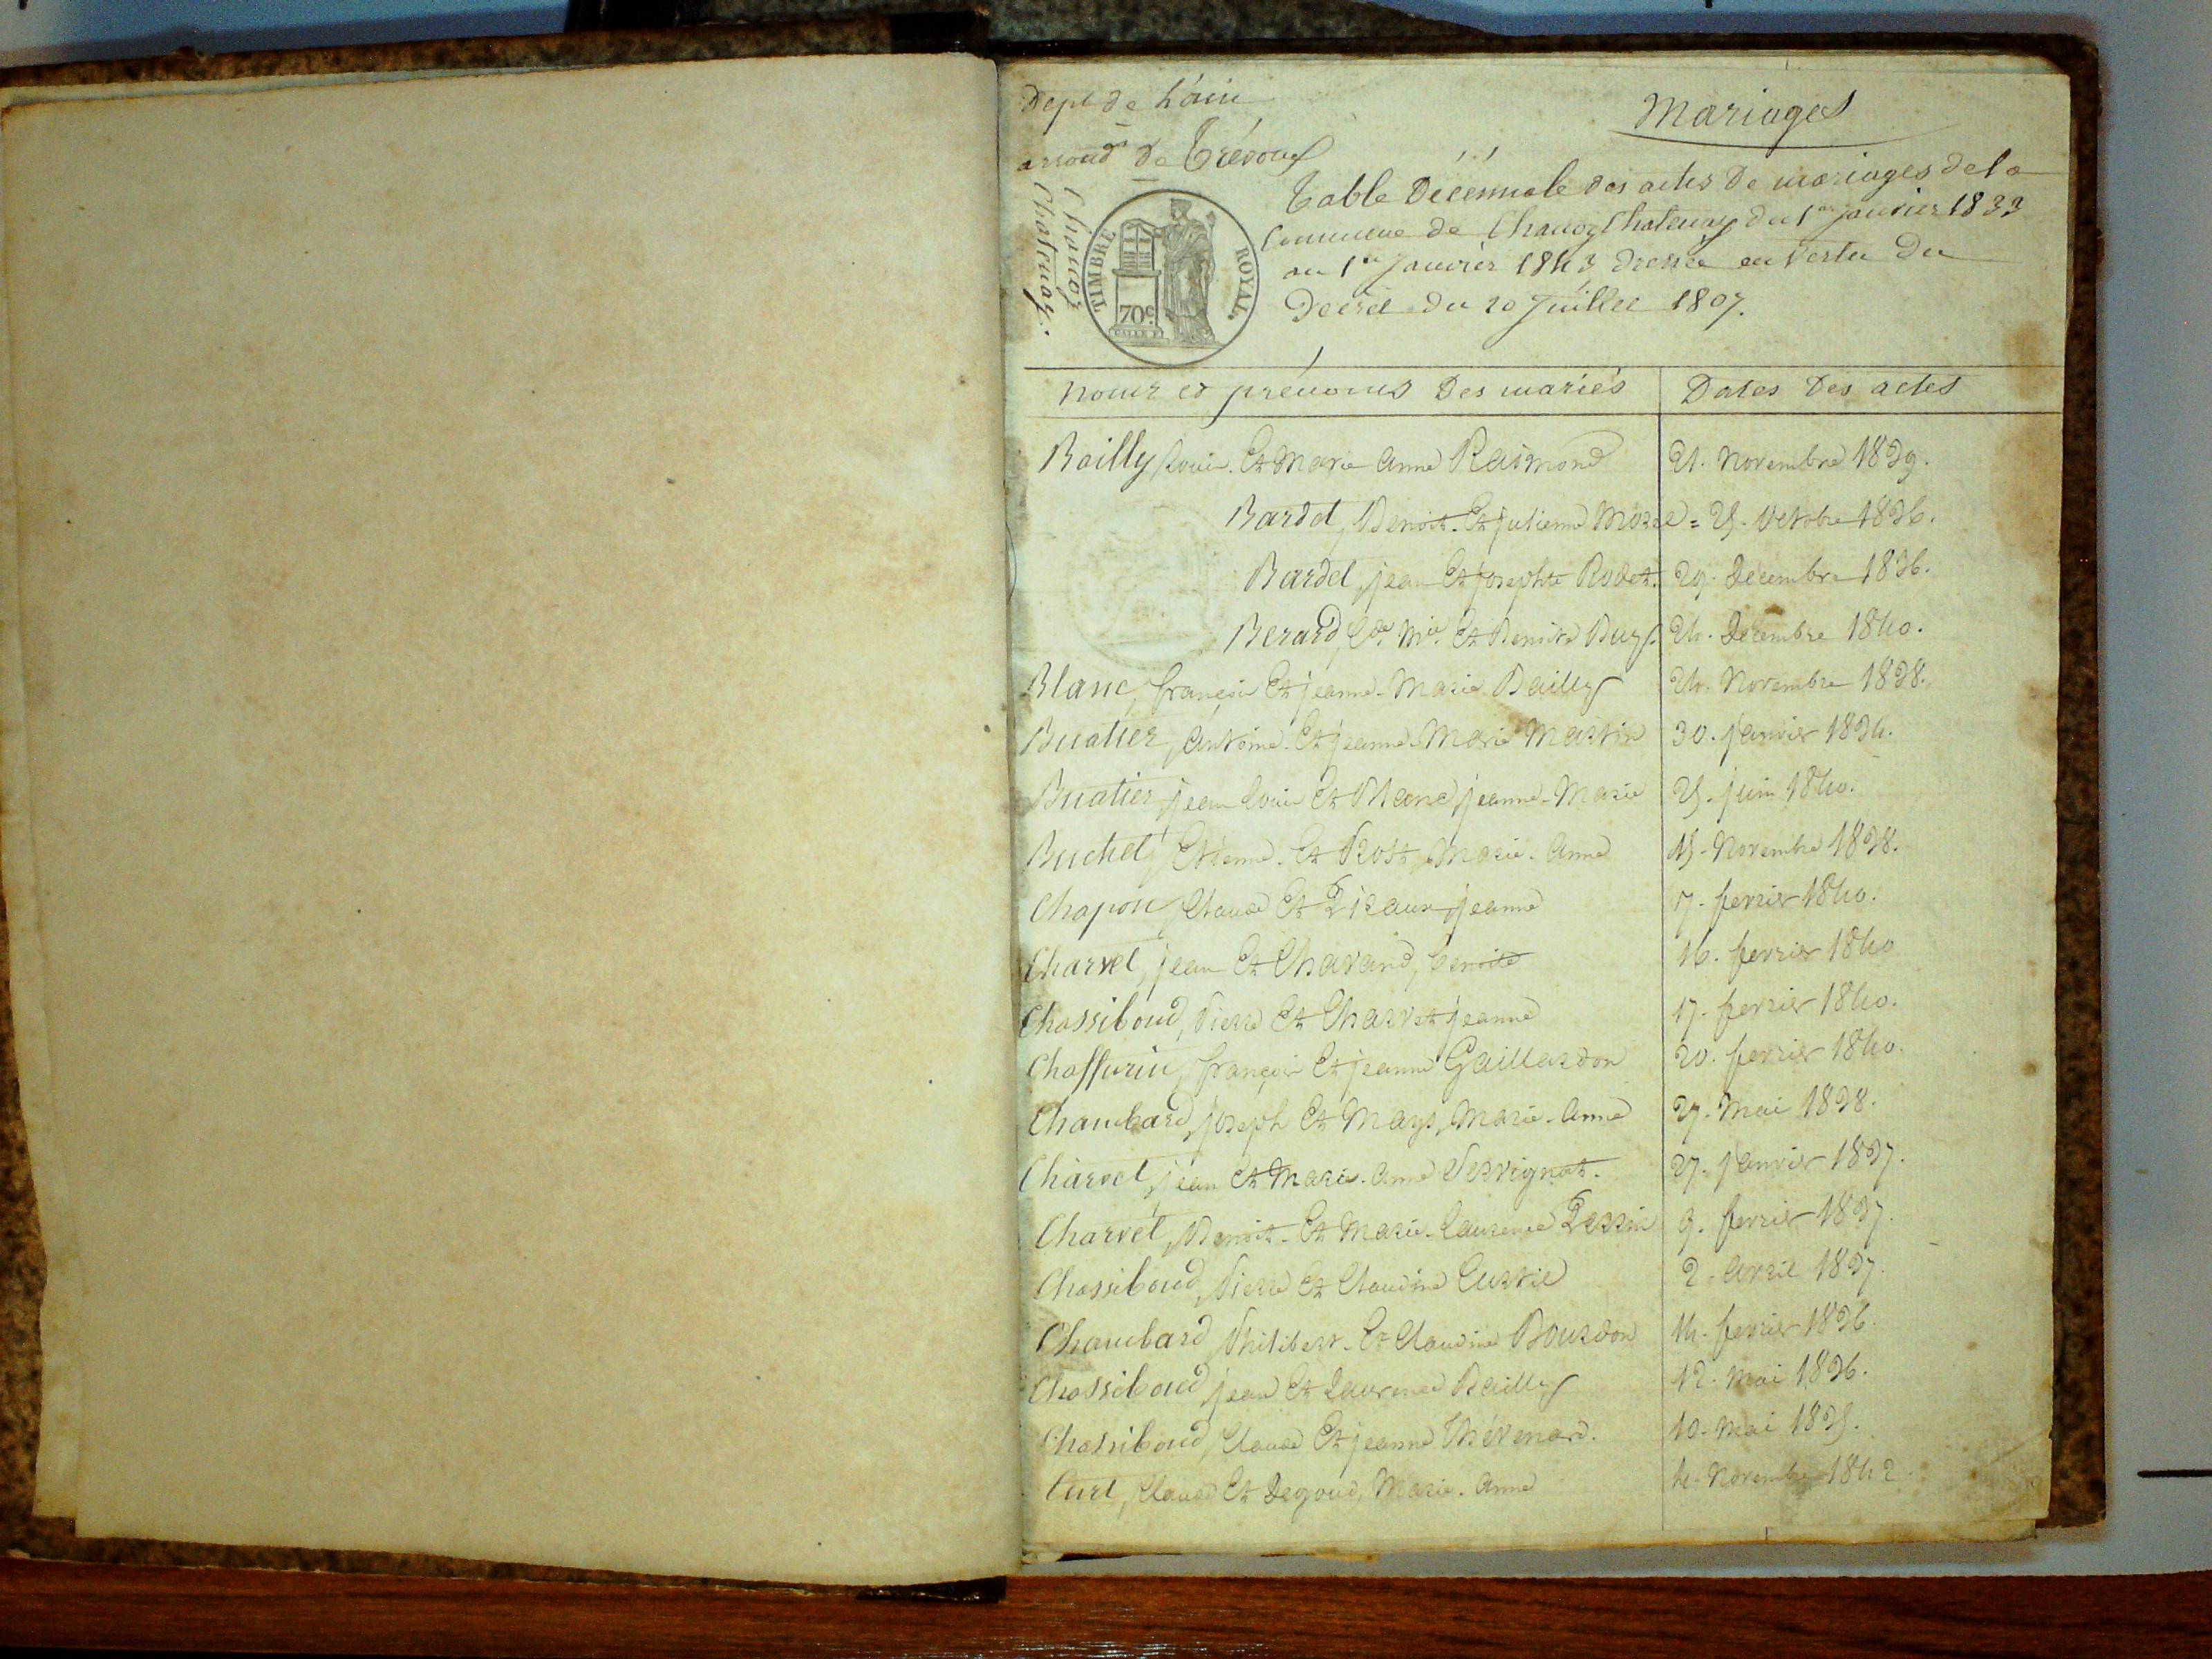 Dept de L'ain
arrondt de Trévoux
Chanoz
Chatenay.
TIMBRE ROYAL.
70c.
Mariages
Table Décennale des actes de mariages de la
Commune de Chanoz Chatenay du 1er janvier 1833
au 1er Janvier 1843 dressée en Vertu du
Decret du 20 Juillet 1807.
noms et prénoms Des mariés Dates Des actes
Bailly, Louis. Et Marie Anne Raimond 21. Novembre 1839.
Bardet, Benoit. Et julienne Morel = 25. Octobre 1836.
Bardet, jean Et josephte Rodet. 29. Décembre 1836.
Berard, Cde Mie. Et Benoite Buys. 24. Décembre 1840.
Blanc, françois Et jeanne-Marie Bailly 24. Novembre 1838.
Buatier, Antoine. Et jeanne-Marie Martin 30. janvier 1834.
Buatier, jean Louis Et Blanc jeanne-Marie 25. juin 1840.
Buchet, Etienne. Et Prost, Marie-Anne 15. Novembre 1838.
Chapon, Claude Et jeanne 7. fevrier 1840.
Charvet, jean Et Chavand, benoite 16. fevrier 1840
Chossiboud, Pierre Et Charvet jeanne 17. fevrier 1840.
Chaffurin, françois Et jeanne Gaillardon 20. fevrier 1840.
Chambard, joseph Et Mays, Marie-Anne 27. Mai 1838.
Charvet, jean Et Marie-Anne Servignat. 27. janvier 1837.
Charvet, Benoit. Et Marie-Laurence 9. fevrier 1837.
Chossiboud, Pierre Et Claudine Curtil 2. Avril 1837.
Chambard, Philibert. Et Claudine Bourdon 14. fevrier 1836.
Chossiboud, jean Et Laurence Bailly 12. Mai 1836.
Chossiboud, Claude Et jeanne Thévenard. 10. Mai 1835.
Curt, Claude Et Degoud, Marie-Anne 4. Novembre 1842.